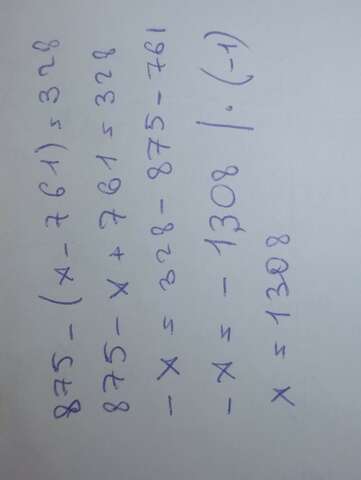 875 - (x - 761) = 328
875 - x + 761 = 328
- x = 328 - 875 - 761
- x = - 1308 / · (-1)
x = 1308